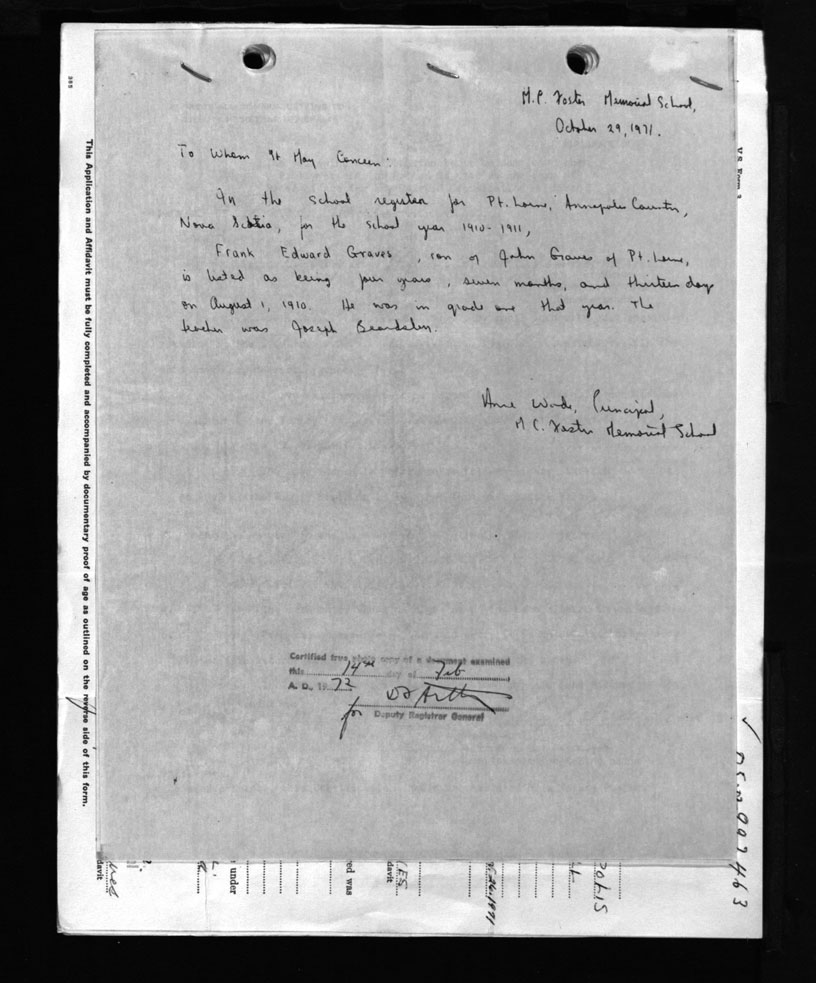 M.C. Foster Memorial School,
October 29, 1971.
To Whom It May Concern:
In the school register for Pt. Lorne, Annapolis County,
Nova Scotia, for the school year 1910-1911,
Frank Edward Graves, son of John Graves of Pt. Lorne,
is listed as being four years, seven months, and thirteen days
on August 1, 1910. He was in grade one that year. The
teacher was Joseph Beardsley.
Principal,
M.C. Foster Memorial School
Certified true photo copy of a document examined
this 14th day of Feb
A. D., 19 72
for Deputy Registrar General
This Application and Affidavit must be fully completed and accompanied by documentary proof of age as outlined on the reverse side of this form.
385
V.S. Form
007463
davit
under
red was
davit
20415